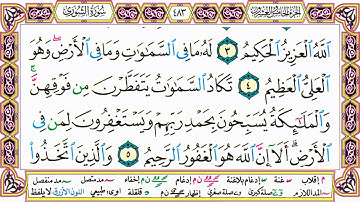 الجزء الخامس والعشرون ٤٨٣ سُورَةُ الشُّورَىٰ
اللَّهُ الْعَزِيزُ الْحَكِيمُ ٣ لَهُ مَا فِي السَّمَٰوَٰتِ وَمَا فِي الْأَرْضِ وَهُوَ
الْعَلِيُّ الْعَظِيمُ ٤ تَكَادُ السَّمَٰوَٰتُ يَتَفَطَّرْنَ مِن فَوْقِهِنَّ
وَالْمَلَٰئِكَةُ يُسَبِّحُونَ بِحَمْدِ رَبِّهِمْ وَيَسْتَغْفِرُونَ لِمَن فِي
الْأَرْضِ أَلَا إِنَّ اللَّهَ هُوَ الْغَفُورُ الرَّحِيمُ ٥ وَالَّذِينَ اتَّخَذُوا